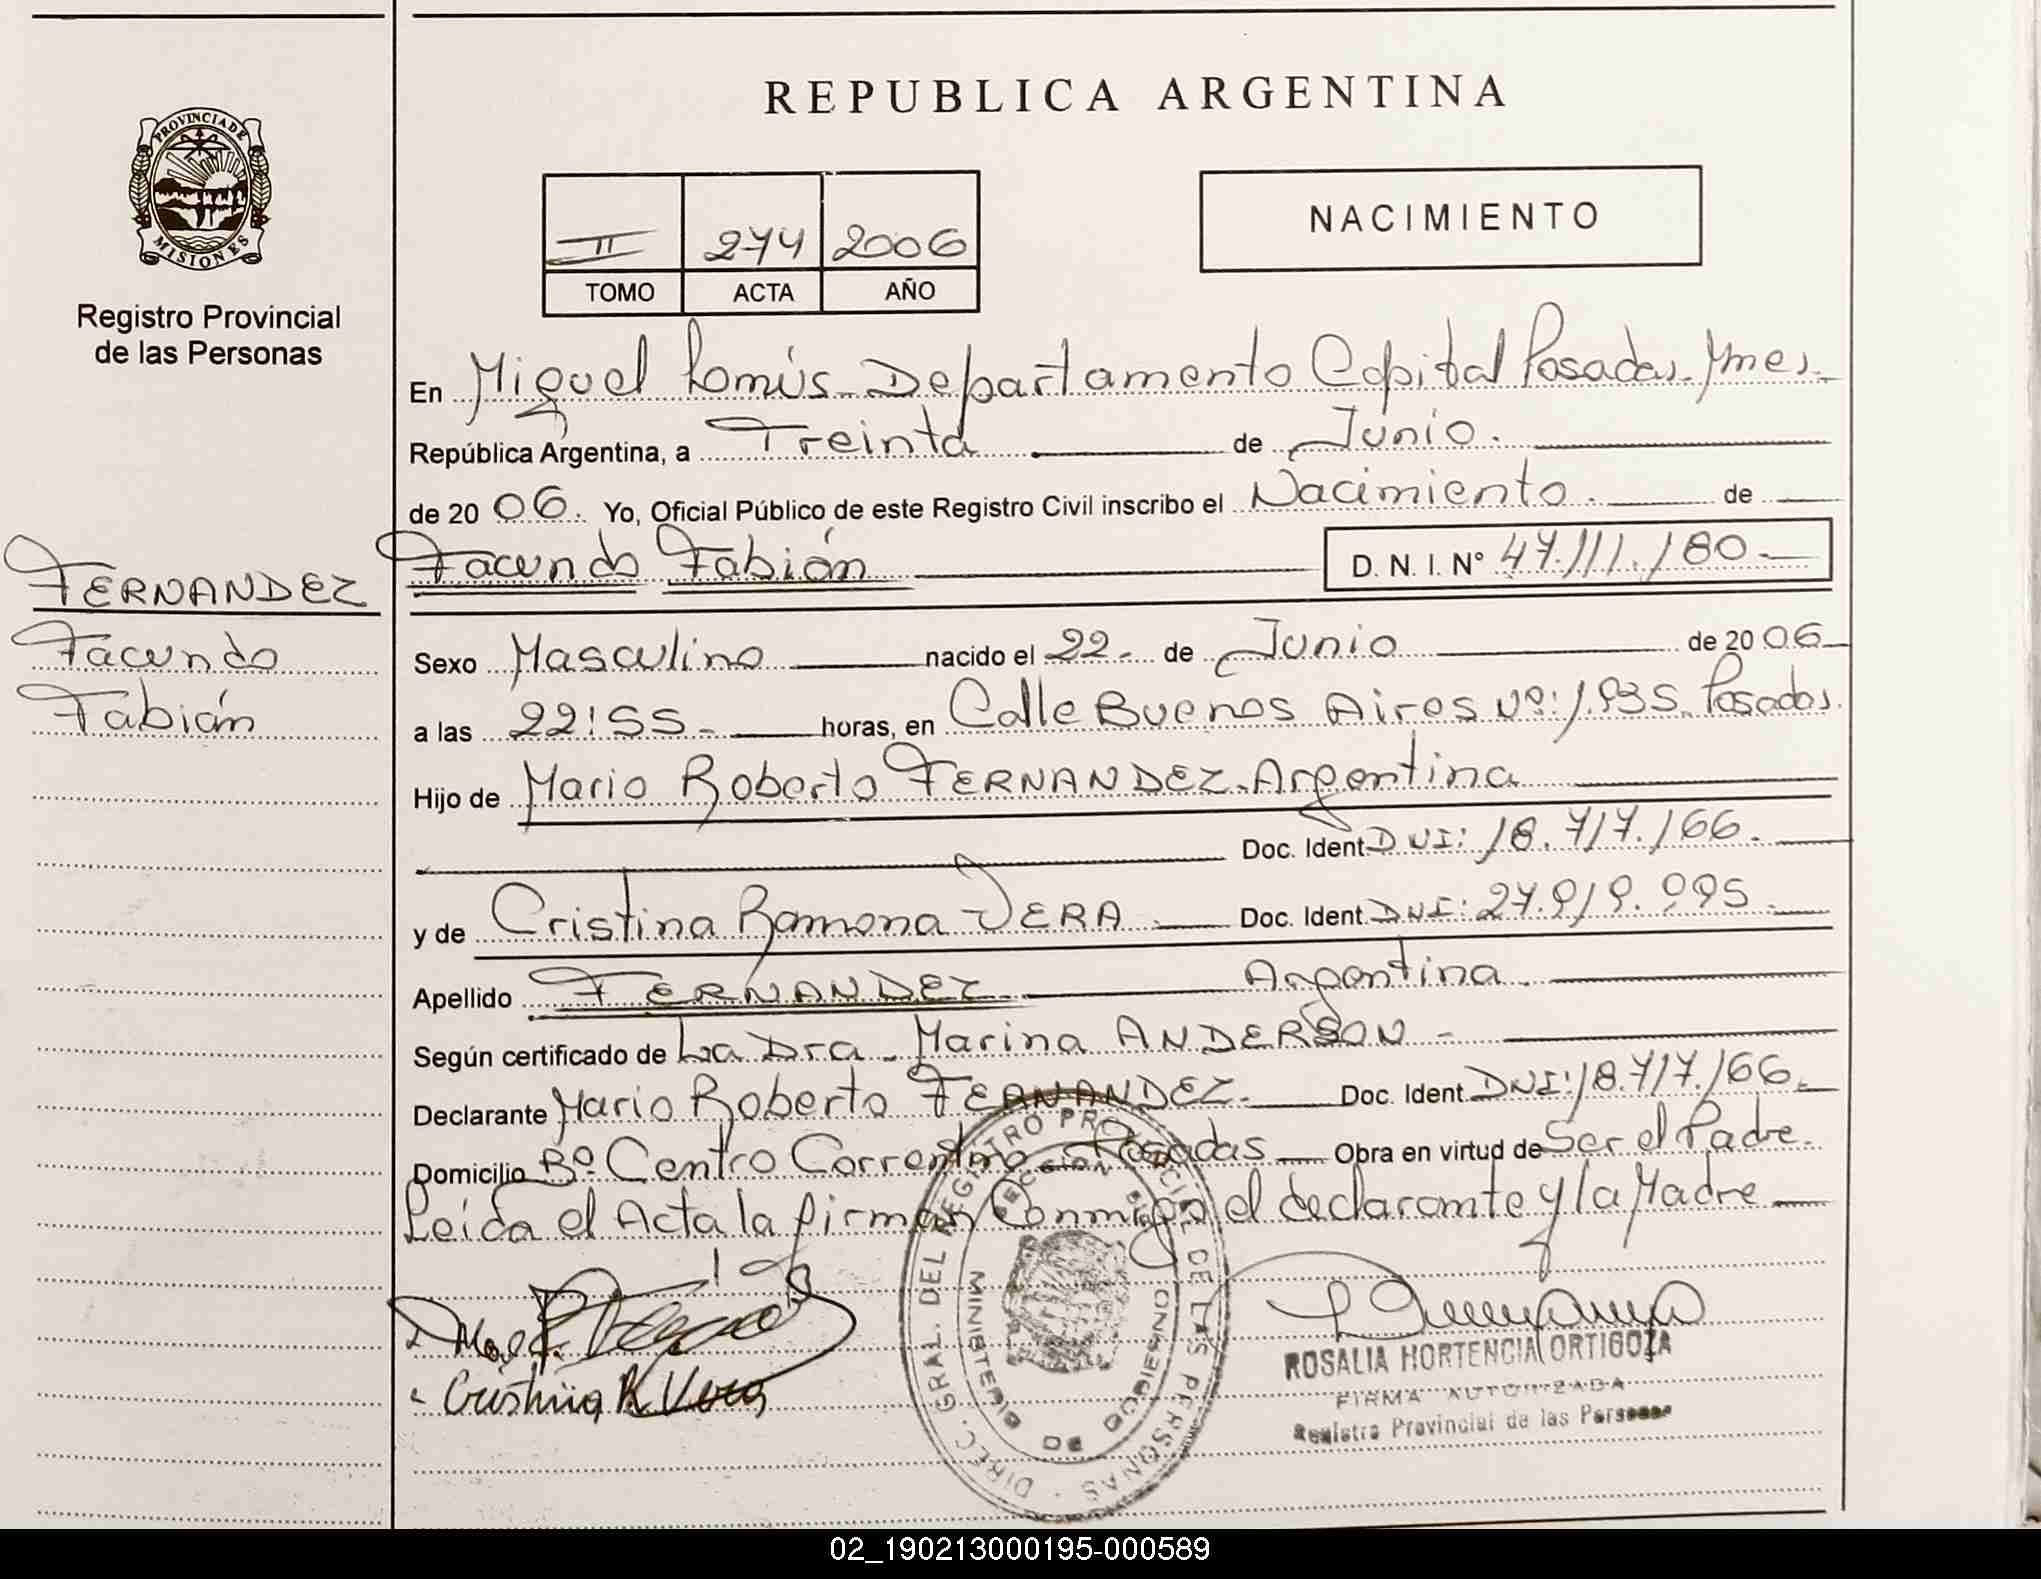 PROVINCIA DE
MISIONES
Registro Provincial
de las Personas
FERNANDEZ
Facundo
Fabián
REPUBLICA ARGENTINA
II 274 2006
TOMO ACTA AÑO
NACIMIENTO
En Miguel Lanús - Departamento Capital Posadas - Mnes.
República Argentina, a Treinta de Junio.
de 20 06. Yo, Oficial Público de este Registro Civil inscribo el Nacimiento. de
Facundo Fabián D. N. I. Nº 47.111.180.-
Sexo Masculino nacido el 22- de Junio de 20 06
a las 22:55- horas, en Calle Buenos Aires Nº: 1.935 Posadas.
Hijo de Mario Roberto FERNANDEZ - Argentina
Doc. Ident DNI: 18.717.166.
y de Cristina Ramona VERA Doc. Ident. DNI: 27.919.995
Apellido FERNANDEZ Argentina
Según certificado de La Dra. Marina ANDERSON -
Declarante Mario Roberto FERNANDEZ. Doc. Ident. DNI: 18.717.166.
Domicilio Bº. Centro Correntino - Posadas Obra en virtud de Ser el Padre.
Leída el Acta la firman Conmigo el declarante y la Madre
Cristina R. Vera
DIREC. GRAL. DEL REGISTRO PROVINCIAL DE LAS PERSONAS
MINISTERIO DE GOBIERNO
ROSALIA HORTENCIA ORTIGOZA
FIRMA AUTORIZADA
Registro Provincial de las Personas
02_190213000195-000589